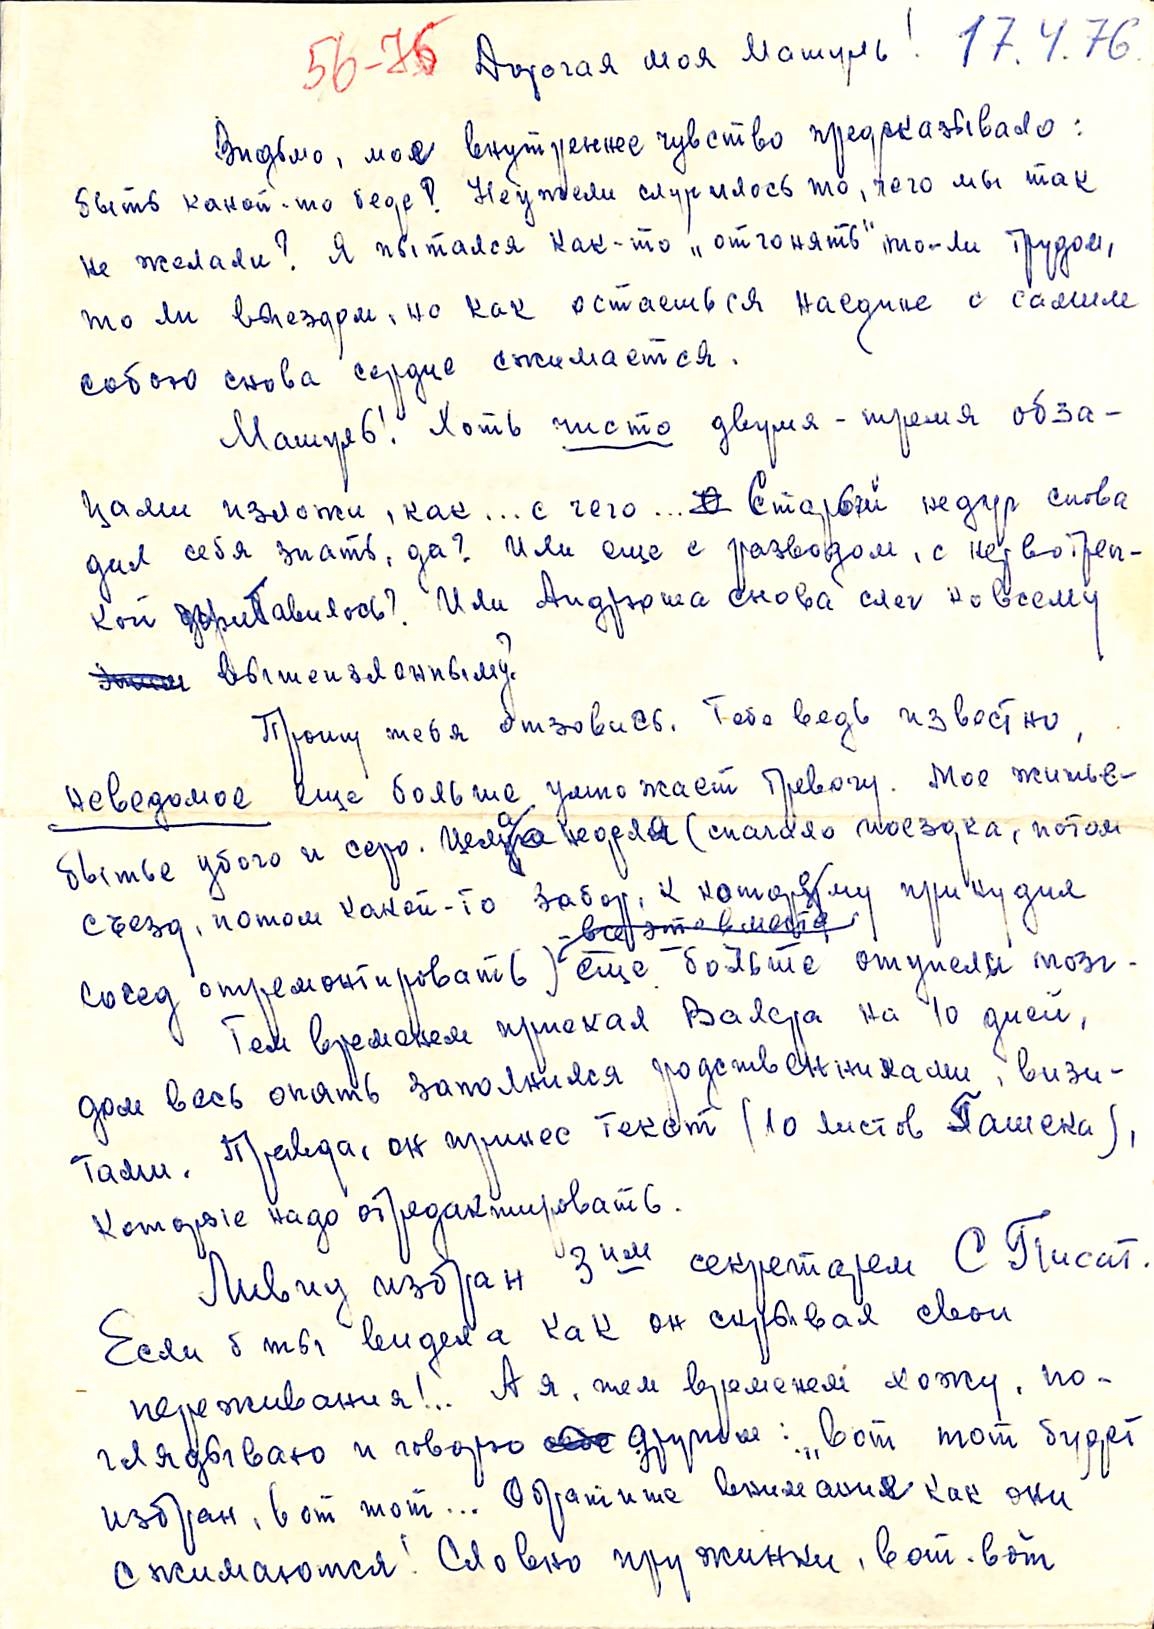 56-76 Дорогая моя Машуль! 17.4.76.
Видимо, мое внутреннее чувство предсказывало:
быть какой-то беде? Неужели случилось то, чего мы так
не желали? Я пытался как-то „отгонять" то-ли трудом,
то ли выездом, но как остаешься наедине с самим
собою снова сердце сжимается.
Машуль! Хоть чисто двумя-тремя абза-
цами изложи, как... с чего... Старый недуг снова
дал себя знать, да? Или еще с разводом, с нервотреп-
кой Или Андрюша снова слег ко всему
вышеизложенному?
Прошу тебя отзовись. Тебе ведь известно,
неведомое еще больше умножает тревогу. Мое житье-
бытье убого и серо. Целая неделя (сначала поездка, потом
съезд, потом какой-то забор, к которому принудил
сосед отремонтировать) - все это вместе
еще больше отупели мозг.
Тем временем приехал на 10 дней,
дом весь опять заполнился родственниками, визи-
тами. Правда, он принес текст (10 листов Пашека),
которые надо отредактировать.
избран 3им секретарем С Писат.
Если б ты видела как он скрывал свои
переживания!.. А я, тем временем хожу, по-
глядываю и говорю другим: „вот тот будет
избран, вот тот... Обратите внимание как они
сжимаются! Словно пружинки, вот-вот